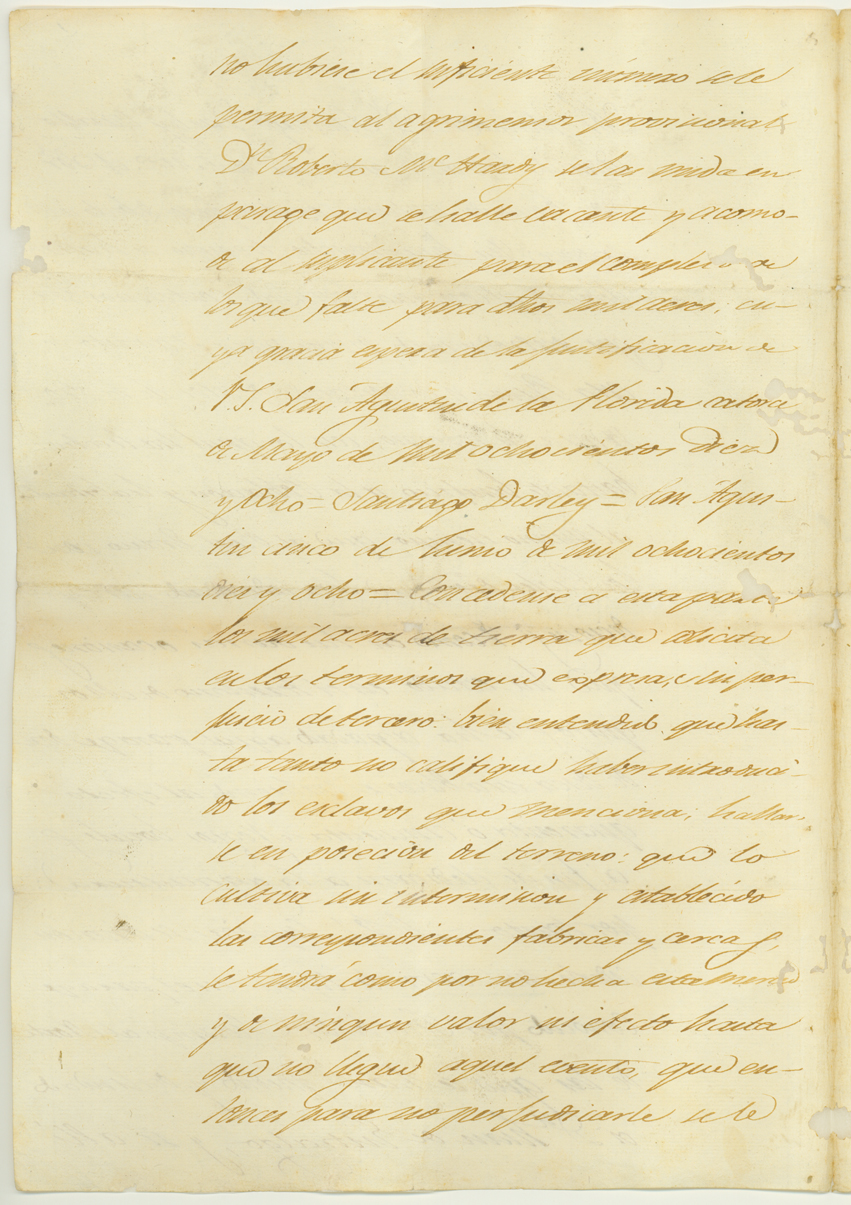 no hubiese el suficiente número se le
permita al agrimensor provisional
Dn. Roberto Mc Hardy se las mida en
parage que se halle vacante y acomo-
de al suplicante para el completo de
los que falte para dhos mil acres, cu-
ya gracia espera de la justificacion de
V.S. San Agustin de la Florida catorce
de Mayo de mil ochocientos Diez
y Ocho = Santiago Darley = San Agus-
tin cinco de Junio de mil ochocientos
diez y ocho = Concedense a esta parte
los mil acres de tierra que solicita
en los terminos que expresa, sin per-
juicio de tercero: bien entendido que has-
ta tanto no califique haber introduci-
do los esclavos que menciona; hallar-
se en poseción del terreno: que lo
cultiva sin intermision y establecido
las correspondientes fabricas y cercas,
se tendrá como por no hecha esta merced
y de ningun valor ni efecto hasta
que no llegue aquel evento, que en-
tonces para no perjudicarle se le